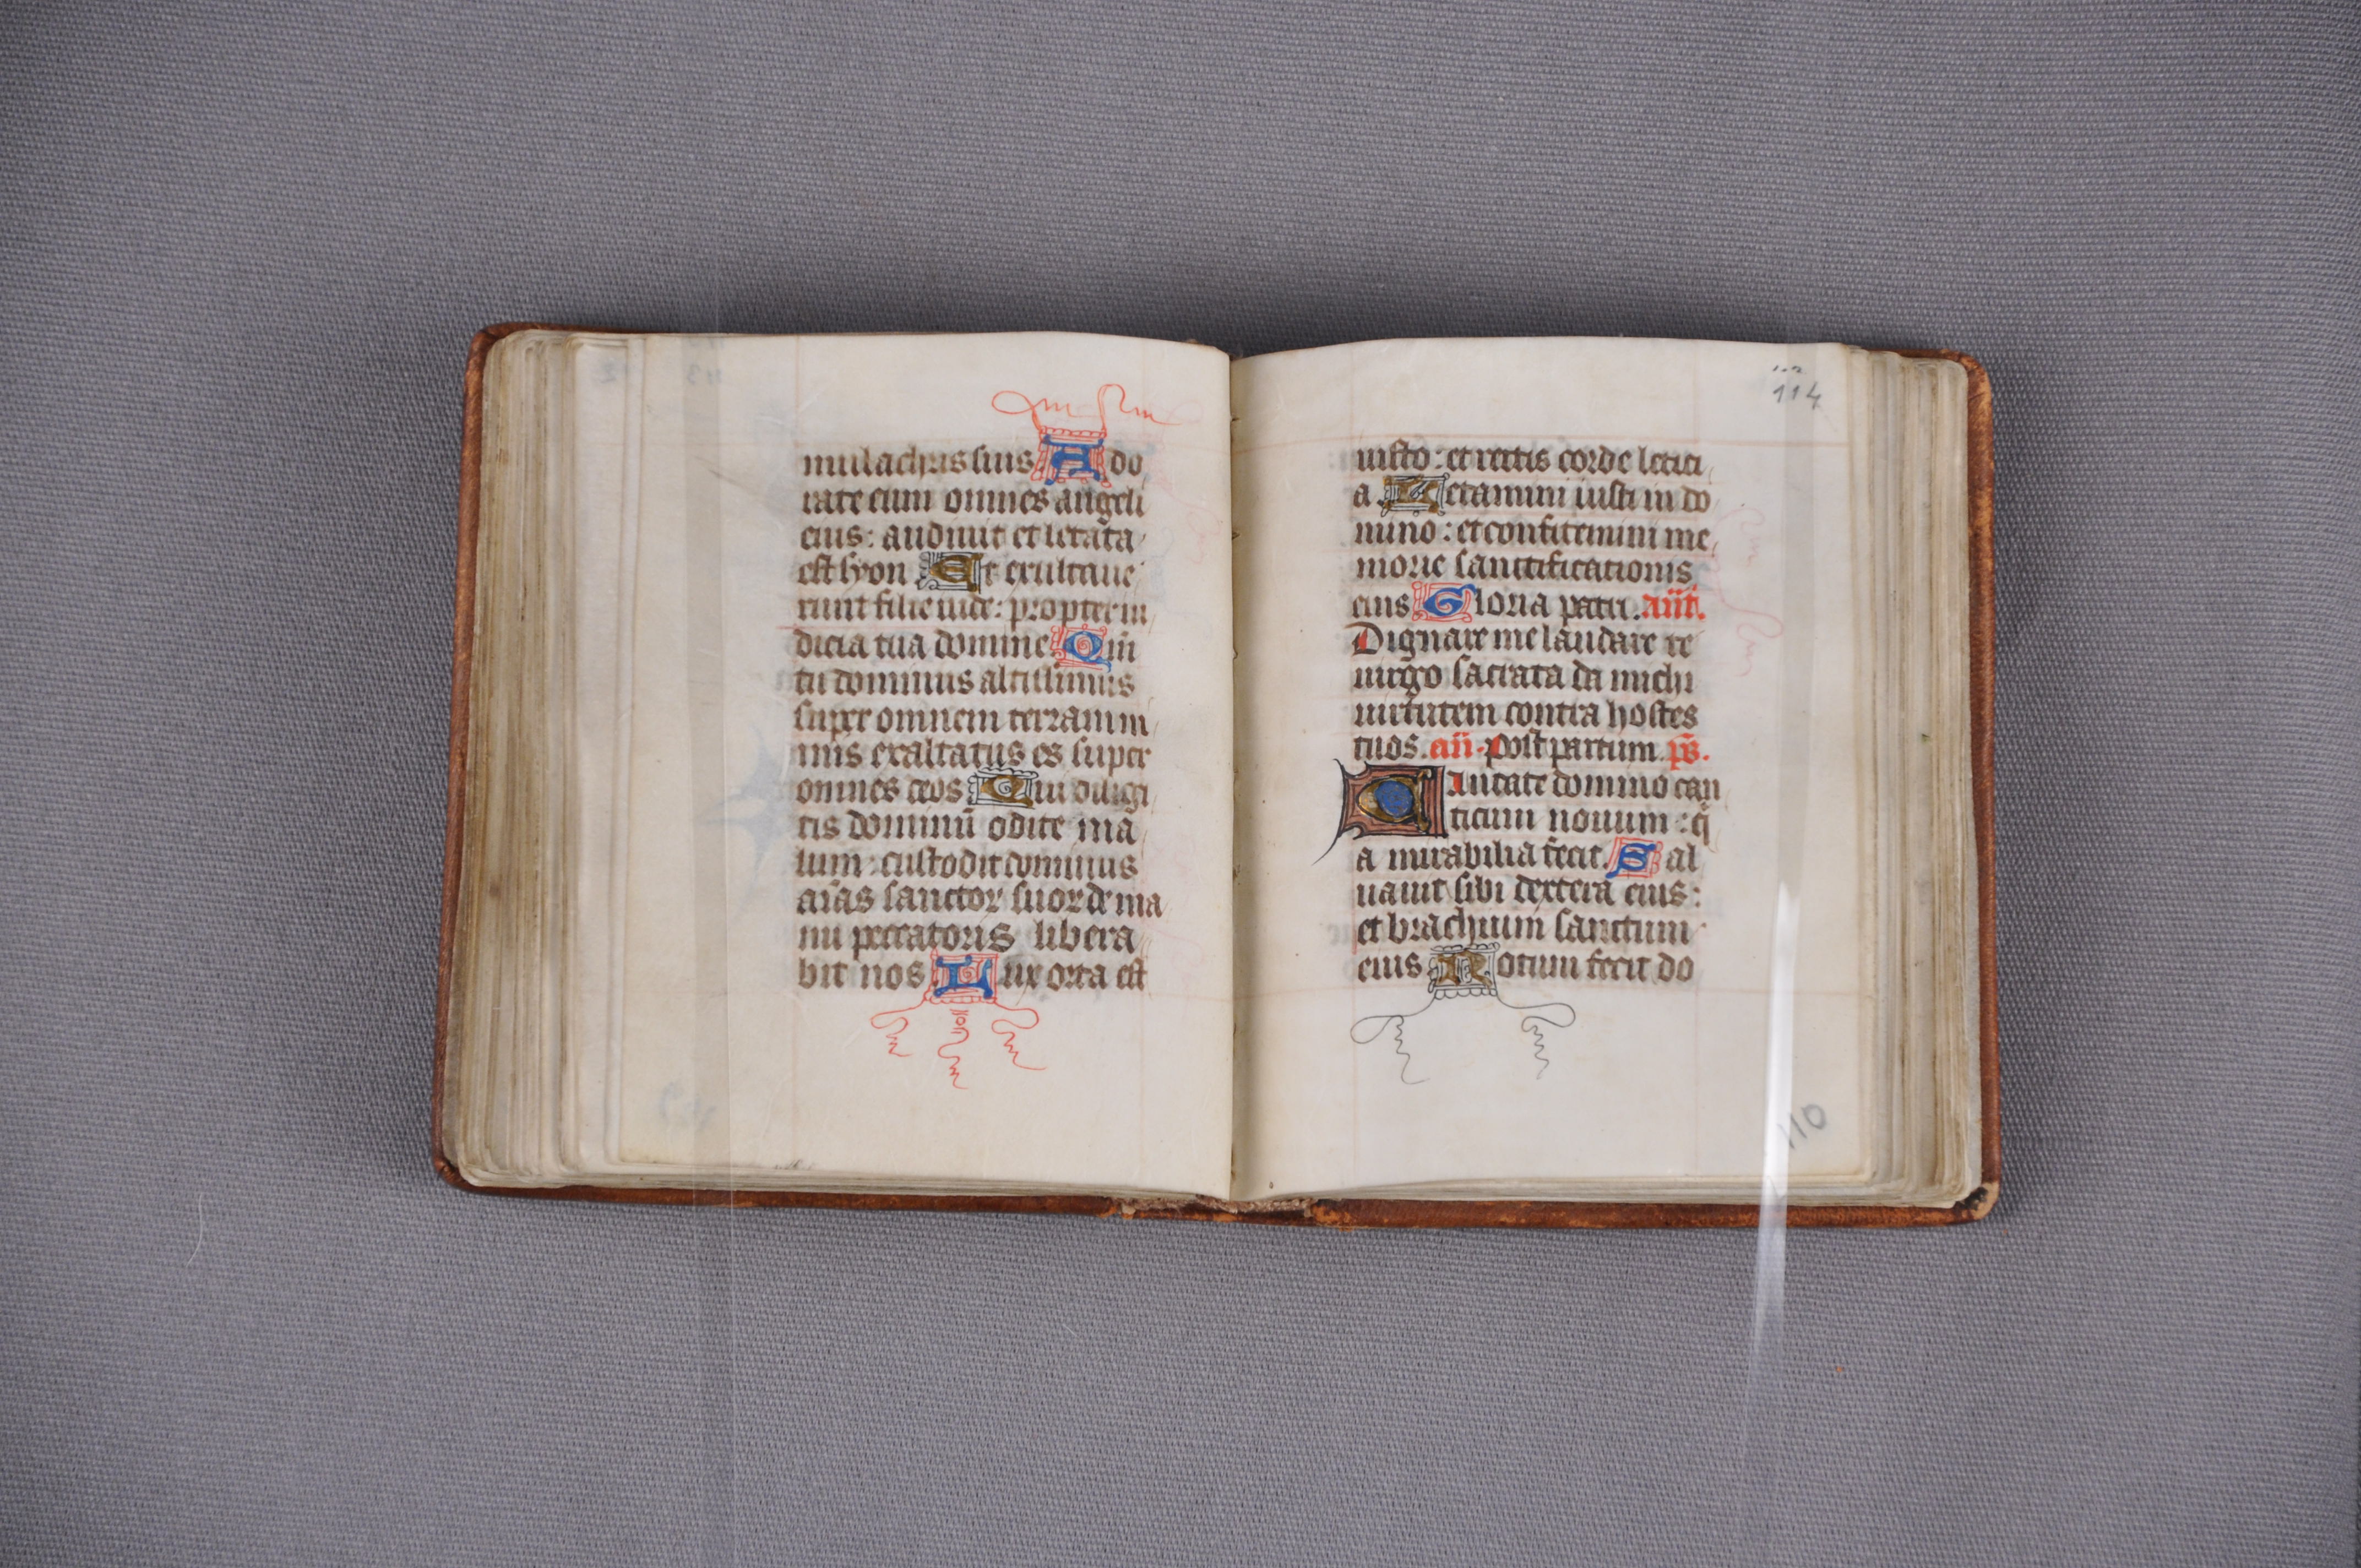 mulachris suis Ado
rate eum omnes angeli
eius: audiuit et letata
est syon Et exultaue
runt filie iude: propter iu
dicia tua domine Qm̄
tu dominus altissimus
super omnem terram ni
mis exaltatus es super
omnes deos Qui diligi
tis dominū odite ma
lum: custodit dominus
aīas sanctor suor de ma
nu peccatoris libera
bit nos Lux orta est
114
iusto: et rectis corde letici
a Letamini iusti in do
mino: et confitemini me
morie sanctificationis
eius Gloria patri. ant̄.
Dignare me laudare te
uirgo sacrata da michi
uirtutem contra hostes
tuos. añ. Post partum. ps̄.
Cantate domino can
ticum nouum: q̄
a mirabilia fecit. Sal
uauit sibi dextera eius:
et brachium sanctum
eius Notum fecit do
110